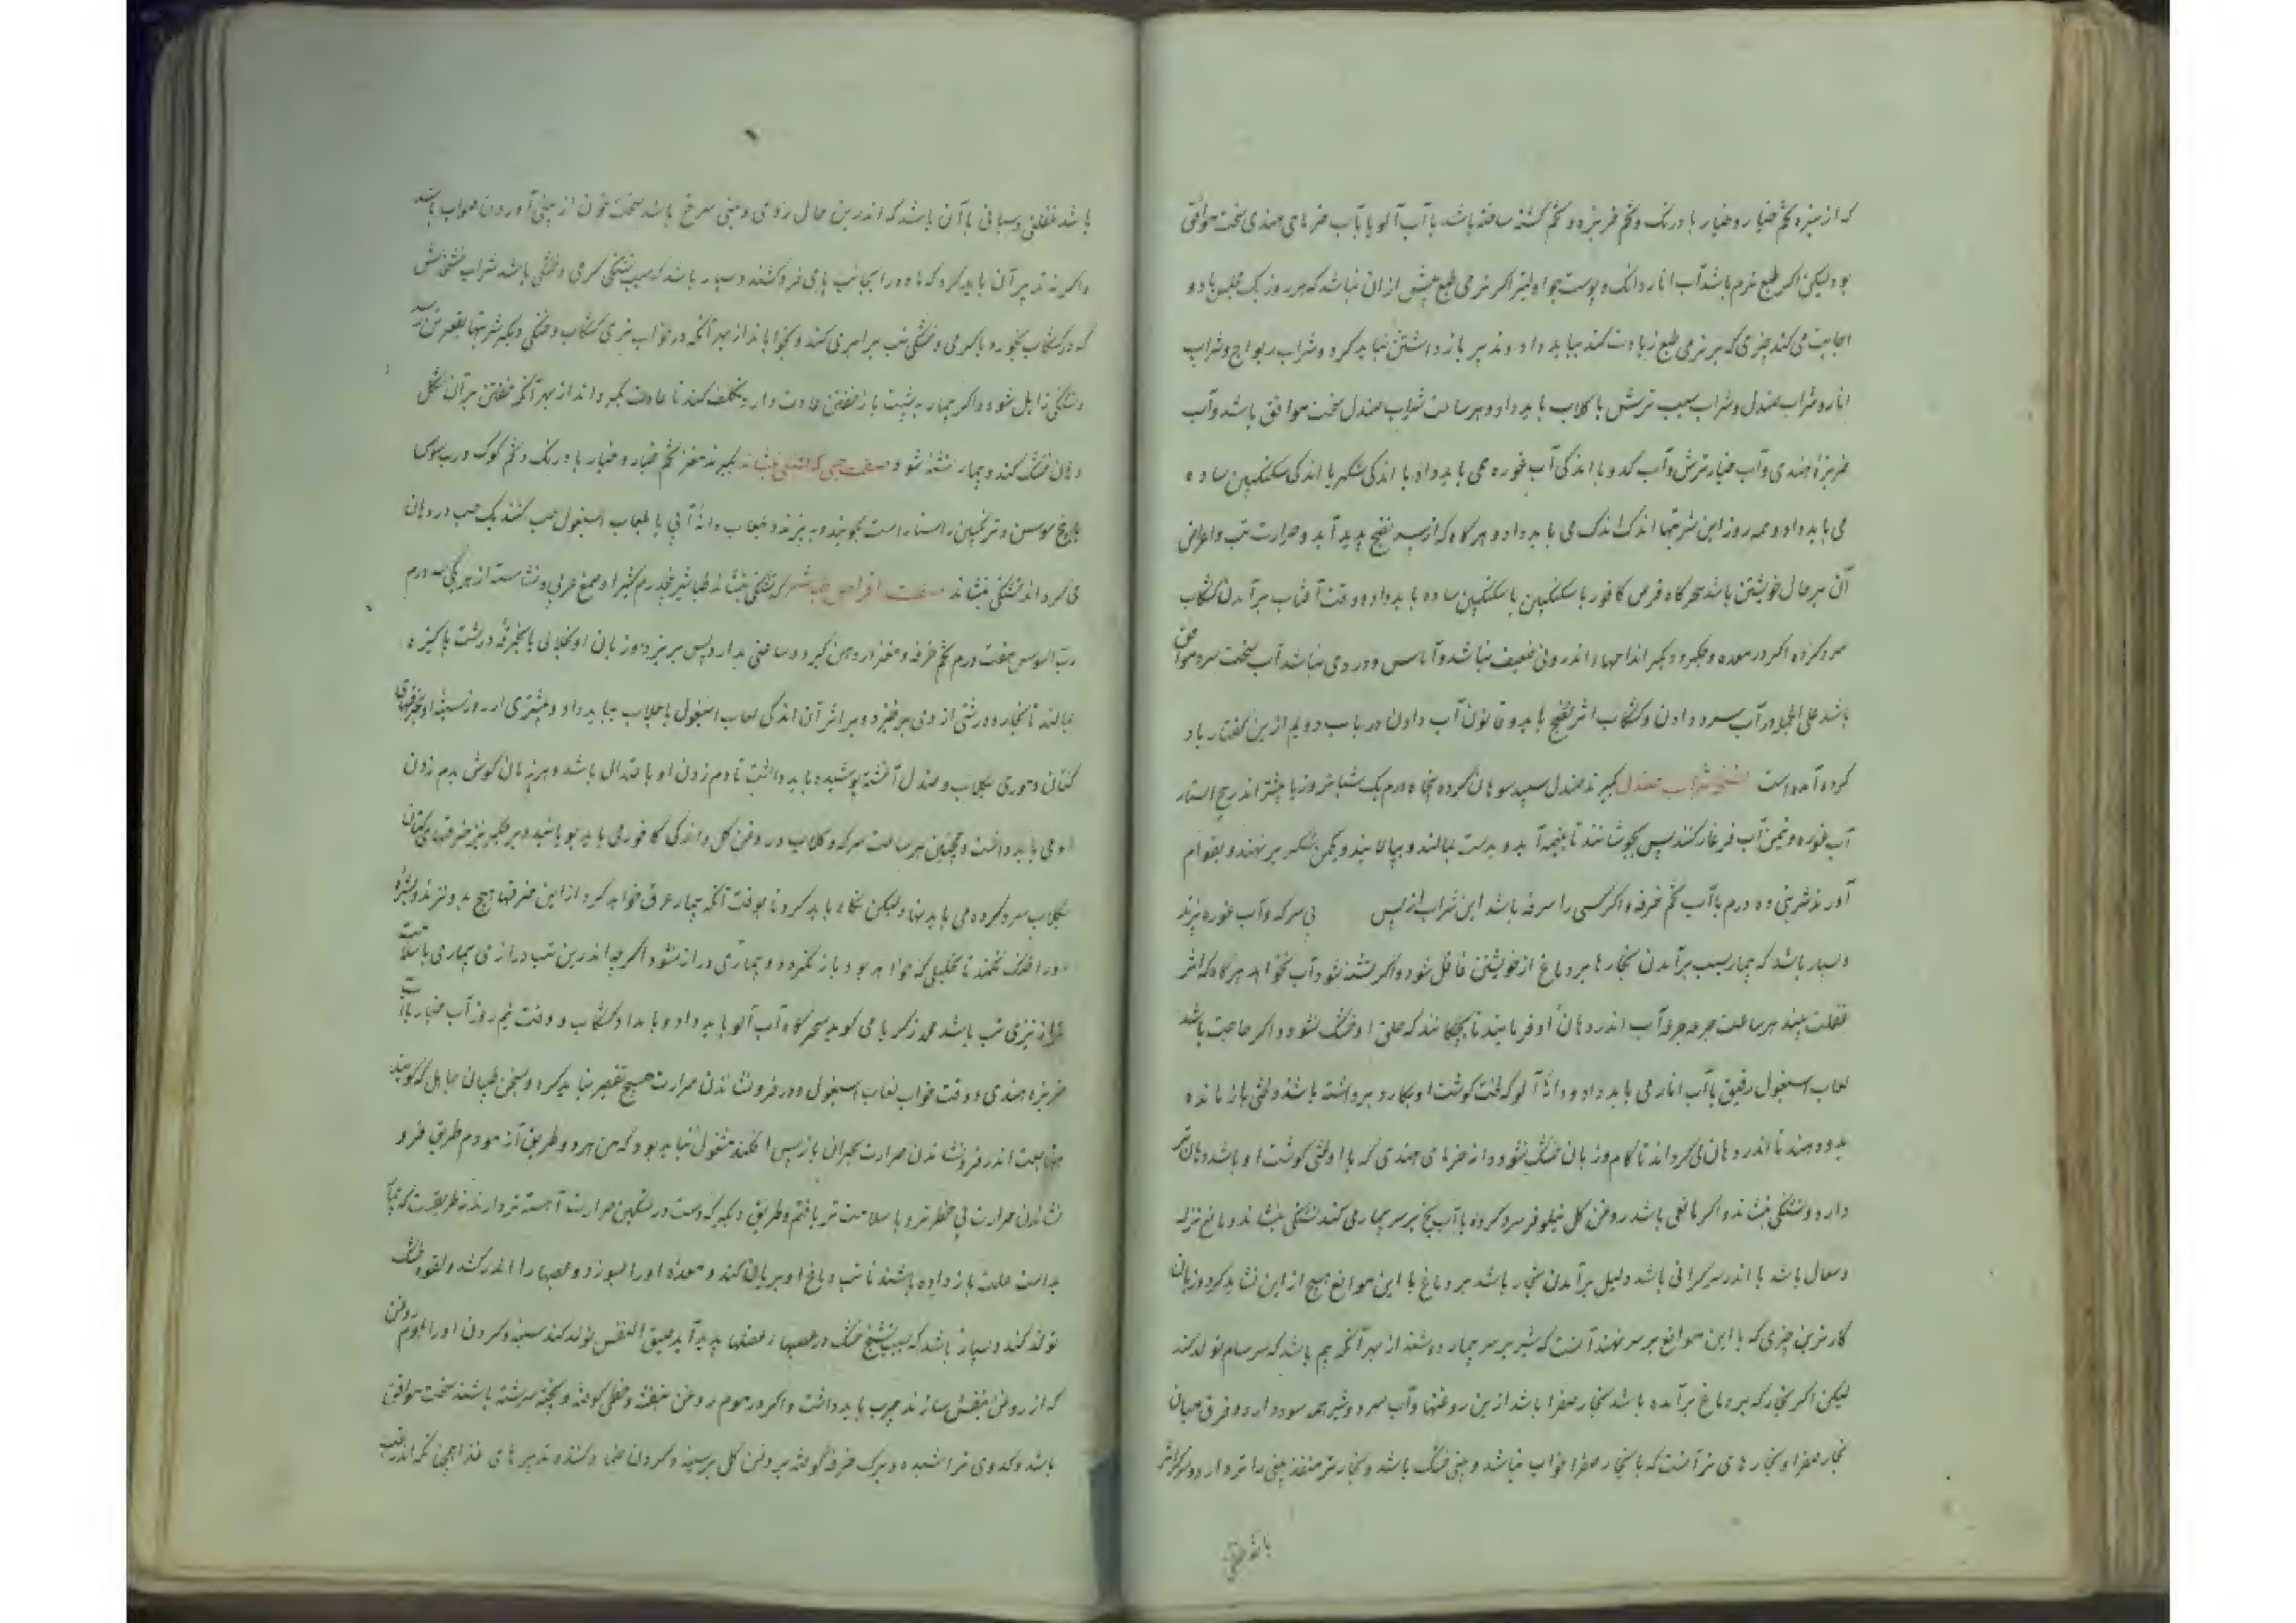 که از مغزه تخم خیار و خیار با درنک و تخم خربزه و تخم کشنه ساخته باشد با آب آلو یا بآب خرمای هندی سخت موافق
بود لیکن اکر طبع نرم باشد آب انار دانک و پوست جو اولیتر اکر نرمی طبع بیش از ان نباشد که هر روز یک مجلس یا دو
اجابت می کند چیزی که بر نرمی طبع زیادت کند نباید داد و تدبیر باز داشتن نباید کرد و شراب ریواج و شراب
انار و شراب صندل و شراب سیب ترش با کلاب باید داد و هر ساعت شراب صندل سخت موافق باشد و آب
خربزه هندی و آب خیار ترش و آب کدو با اندکی آب غوره می باید داد با اندکی شکر یا اندکی سکنکبین ساده
می باید داد و همه روز این شربتها اندک اندک می باید داد و هر کاه که از پس نضج پدید آید و حرارت تب و اعراض
آن بر حال خویشتن باشد سحرکاه قرص کافور با سکنکبین یا سکنکبین ساده باید داد و وقت آفتاب برآمدن کشکاب
سرد کرده اکر در معده و جکر و دیکر اندامهاء اندرونی ضعیف نباشد و آماس و دردی نباشد آب سخت سرد موافق
باشد علی الجمله در آب سرد دادن و کشکاب اثر نضج باید و قانون آب دادن در باب دویم ازین کفتار یاد
کرده آمده است نسخه شراب صندل بکیرند صندل سپید سوهان کرده پنجاه درم یک شبانروز یا بیشتر اندر پنج استار
آب غوره و نیمن آب فرغار کنند پس بجوشانند تا نیمه آید و بدست بمالند و بپالایند و یکمن شکر بر نهند و بقوام
آورند شربتی ده درم با آب تخم خرفه و اکر کسی را سرفه باشد این شراب از پس بی سرکه و آب غوره پزند
و بسیار باشد که بیمار بسبب برآمدن بخارها بر دماغ از خویشتن غافل شود و اکر تشنه شود آب نخواهد هرکاه که اثر
غفلت بیند هر ساعت جرعه جرعه آب اندر دهان او فرمایند تا بچکانند که حلق او خشک نشود و اکر حاجت باشد
لعاب اسبغول رقیق با آب انار می باید داد و دانهٔ آلو که لخت کوشت او بکارد برداشته باشند و لختی باز مانده
بدو دهند تا اندر دهان می کرداند تا کام و زبان خشک نشود و دانه خرمای هندی که با او لختی کوشت او باشد دهان تر
دارد و تشنکی بنشاند و اکر مانعی باشد روغن کل نیلوفر سرد کرده با آب یخ بر سر بیمار می کند تشنکی بنشاند و مانع نزله
و سعال باشد یا اندر سر کرانی باشد دلیل برآمدن بخار باشد بر دماغ با این موانع هیچ از این نشاید کرد و زیان
کارترین چیزی که با این موانع بر سر نهند آنست که شیر بر سر بیمار دوشند از بهر آنکه بیم باشد که سرسام تولد کند
لیکن اکر بخار که بر دماغ برآمده باشد بخار صفرا باشد ازین روغنها و آب سرد و شیر همه سود دارد و فرق میان
بخار صفرا و بخارهای تر آنست که با بخار صفرا خواب نباشد و بینی خشک باشد و بخار تر منفذ بینی را تر دارد و سر کران
باشد غفلتی
باشد غفلتی و سباتی با آن باشد که اندرین حال روی و بینی سرخ باشد سخت خون از بینی آوردن صواب باشد
و اکر نه تدبیر آن باید کرد که ماده را بجانب پای فرو کشند و بسیار باشد که سبب تشنکی کرمی و خشکی باشد شراب خشخاش
که در کشکاب بخورد با کرمی و خشکی تب برابری کند و بخواباند از بهر آنکه در خواب تری کشکاب و خنکی دیکر شربتها بقعر تن رسد
و تشنکی زایل شود و اکر بیمار بپشت باز خفتن عادت دارد تکلف کند تا عادت بکرداند از بهر آنکه خفتن بر آن شکل
دهان خشک کند و بیمار تشنه شود صفت حبی که تشنکی بنشاند بکیرند مغز تخم خیار و خیار با درنک و تخم کوک و رب سوس
یا بیخ سوسن و ترنکبین راستا راست بکوبند و ببیزند و بلعاب دانهٔ آبی یا بلعاب اسبغول حب کنند یک حب در دهان
می کرداند تشنکی بنشاند صفت اقراص طباشیر که تشنکی بنشاند طباشیر پنج درم کثیرا و صمغ عربی و نشاسته از هر یکی سه درم
رب السوس هفت درم تخم خرفه و مغز اردهن کیرد و ساعتی بدارد پس بریزد و زبان او بخلالی یا بخرقه درشت پاکیزه
بمالند تا بخار و درشتی از وی برخیزد و بر اثر آن اندکی لعاب اسبغول با جلاب بباید داد و بیشتری از روز سینهٔ او بخرقهای
کتان و توری بکلاب و صندل آغشته پوشیده باید داشت تا دم زدن او باعتدال باشد و هر زمان کوش بدم زدن
او می باید داشت و همچنین هر ساعت سرکه و کلاب و روغن کل و اندکی کافور می باید بویانید و بر جکر نیز خرقهای کتان
بکلاب سرد کرده می باید نهاد ولیکن نکاه باید کرد تا بوقت آنکه بیمار عرق خواهد کرد از این خرقها هیچ بدو نزند و بشره
او را خنک نکنند تا تحلیلی که خواهد بود باز نکردد و بیماری دراز نشود اکر چه اندرین تب درازی بیماری با سلامت
تر از تیزی تب باشد محمد زکریا می کوید سحرکاه آب آلو باید داد و بامداد کشکاب و وقت نیم روز آب خیار با آب
خربزه هندی و وقت خواب لعاب اسبغول و در فرو نشاندن حرارت هیچ تقصیر نباید کرد و بسخن طبیبان جاهل که کویند
اندر فرو نشاندن حرارت بحران باز پس افکند مشغول نباید بود که من هر دو طریق آزمودم طریق فرو
نشاندن حرارت بی خطرتر و با سلامت تر یافتم و طریق دیکر که دست در تسکین حرارت آهسته تر دارند نه طریقیست که
بدست علت باز داده باشند تا تب دماغ او بریان کند و معدهٔ او را بسوزد و عصبها را اندر کشد و لقوه خشک
تولد کند و بسیار باشد که بسبب تشنج خشک در عصبها و عضلها پدید آید ضیق النفس تولد کند سینه و کردن او را بموم روغن
که از روغن بنفش سازند چرب باید داشت و اکر در موم روغن بنفشه و خطمی کوفته و بیخته سرشته باشند سخت موافق
باشد و کدوی تراشیده و برک خرفه کوفته بروغن کل بر سینه و کردن ضماد کنند و تدبیرهای غذا همچنانکه اندر تب